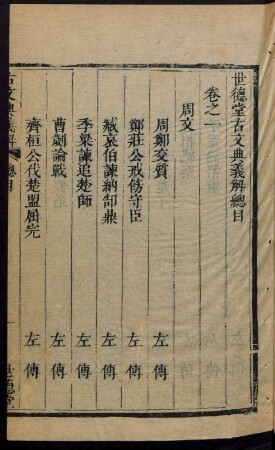 世德堂古文典義解總目
卷之一
周文
周鄭交質 左傳
鄭莊公戒飭守臣 左傳
臧哀伯諫納郜鼎 左傳
季梁諫追楚師 左傳
曹劌論戰 左傳
齊桓公伐楚盟屈完 左傳
古文典義解 總目 一 世德堂